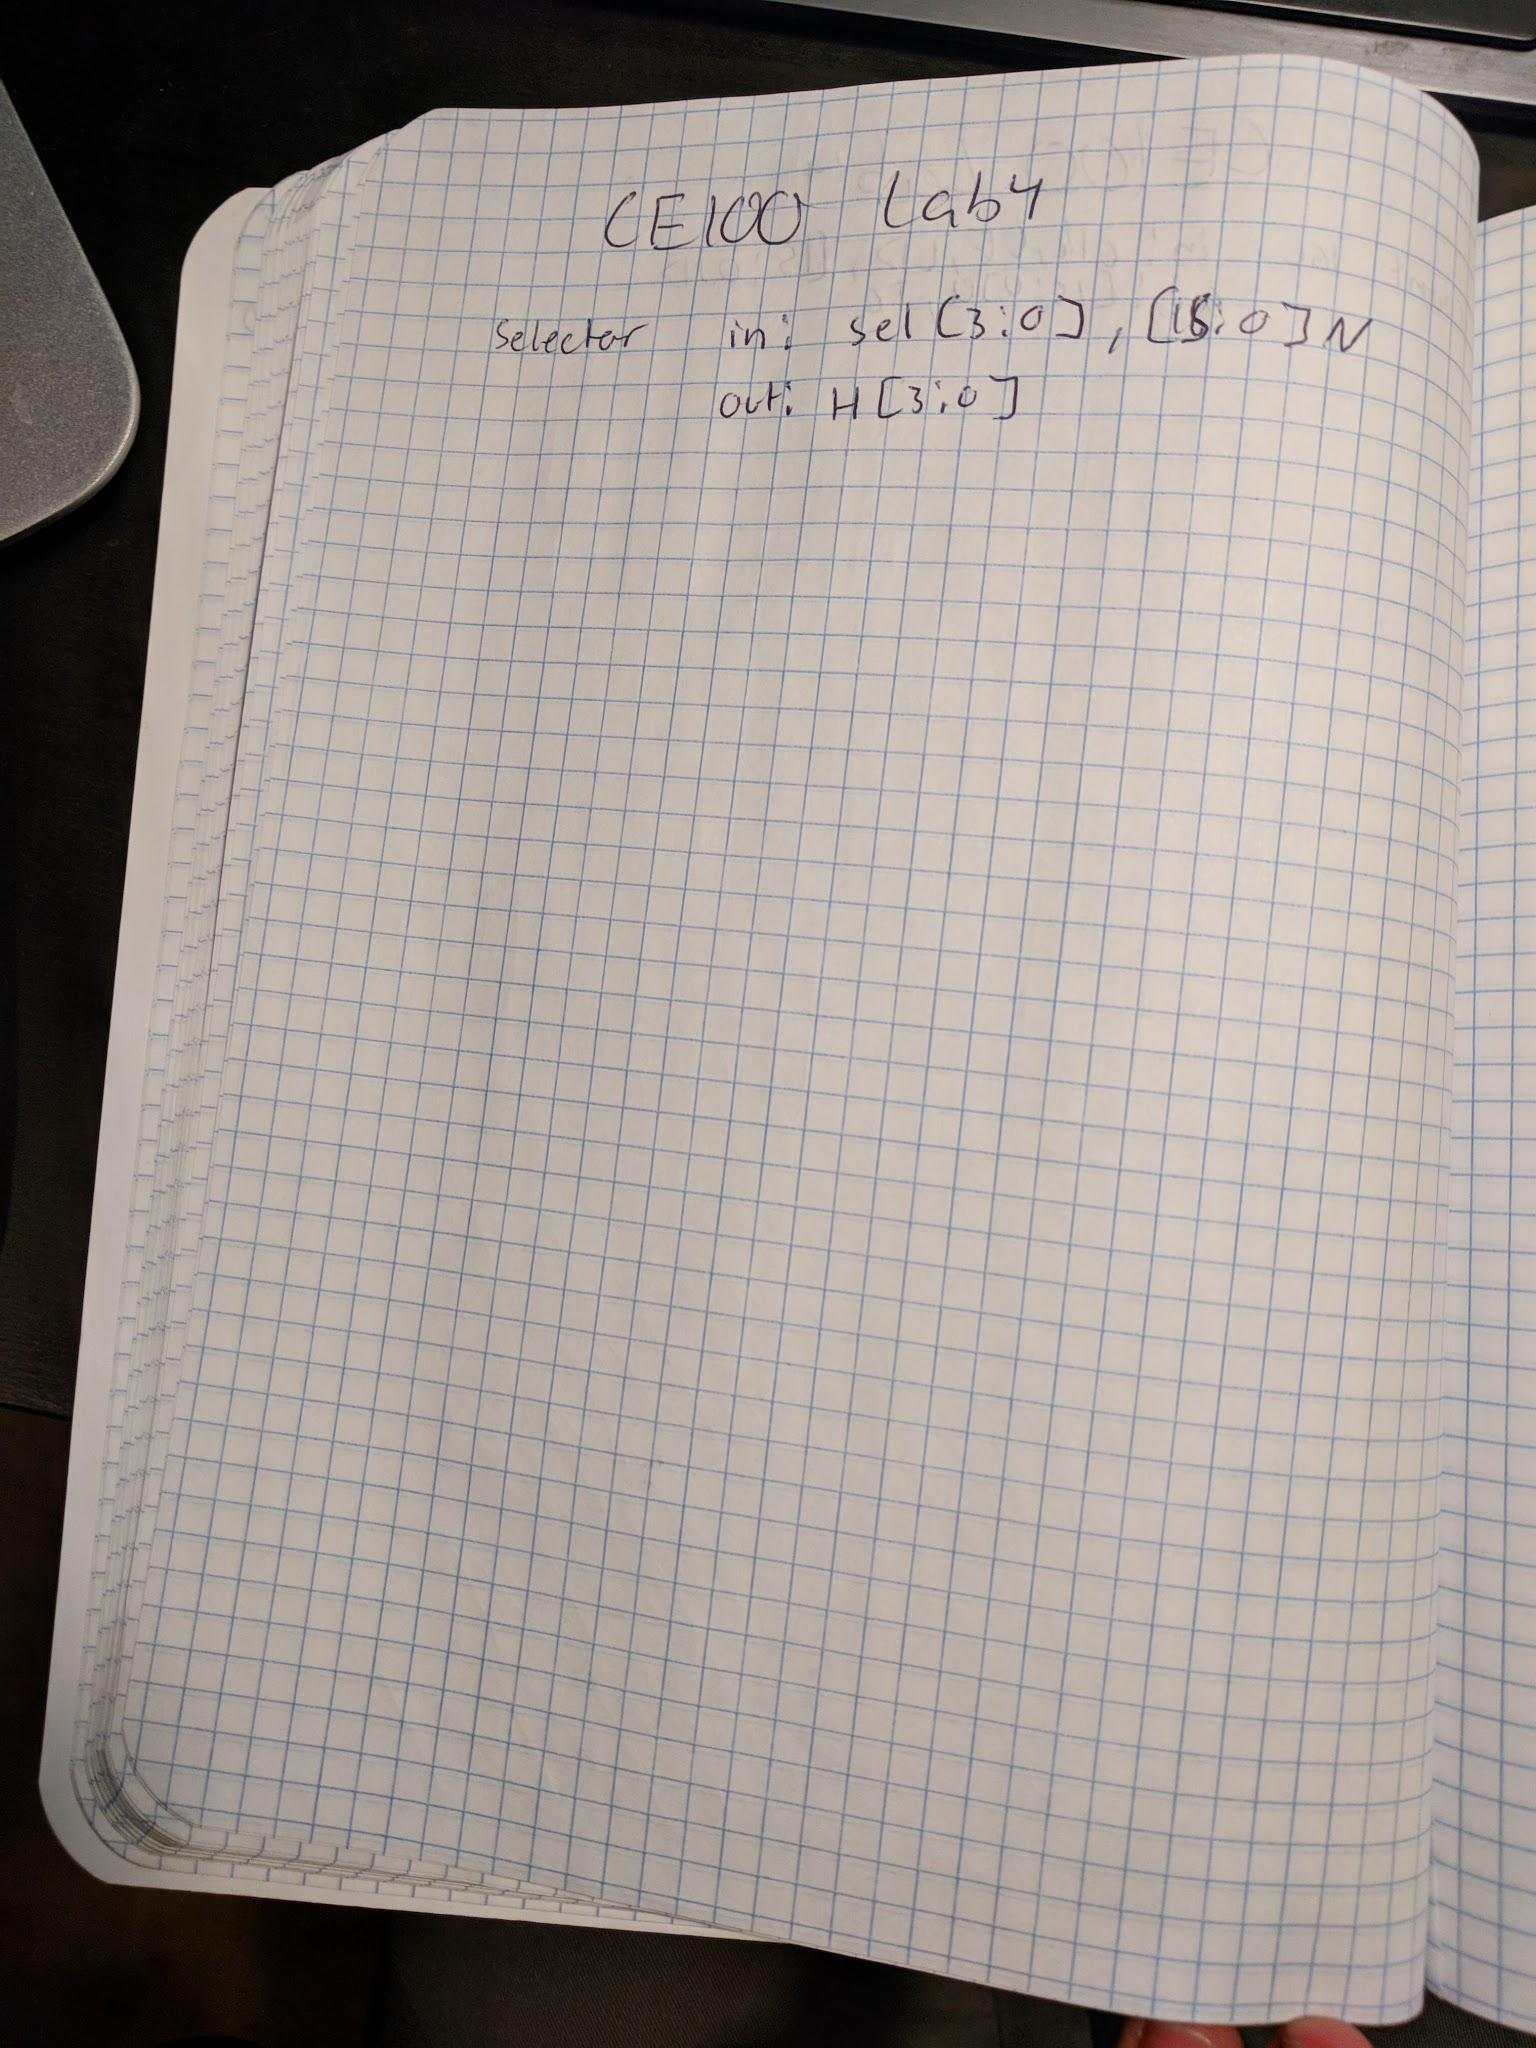 CE100 Lab4
Selector in: sel[3:0], [15:0]N
out: H[3:0]